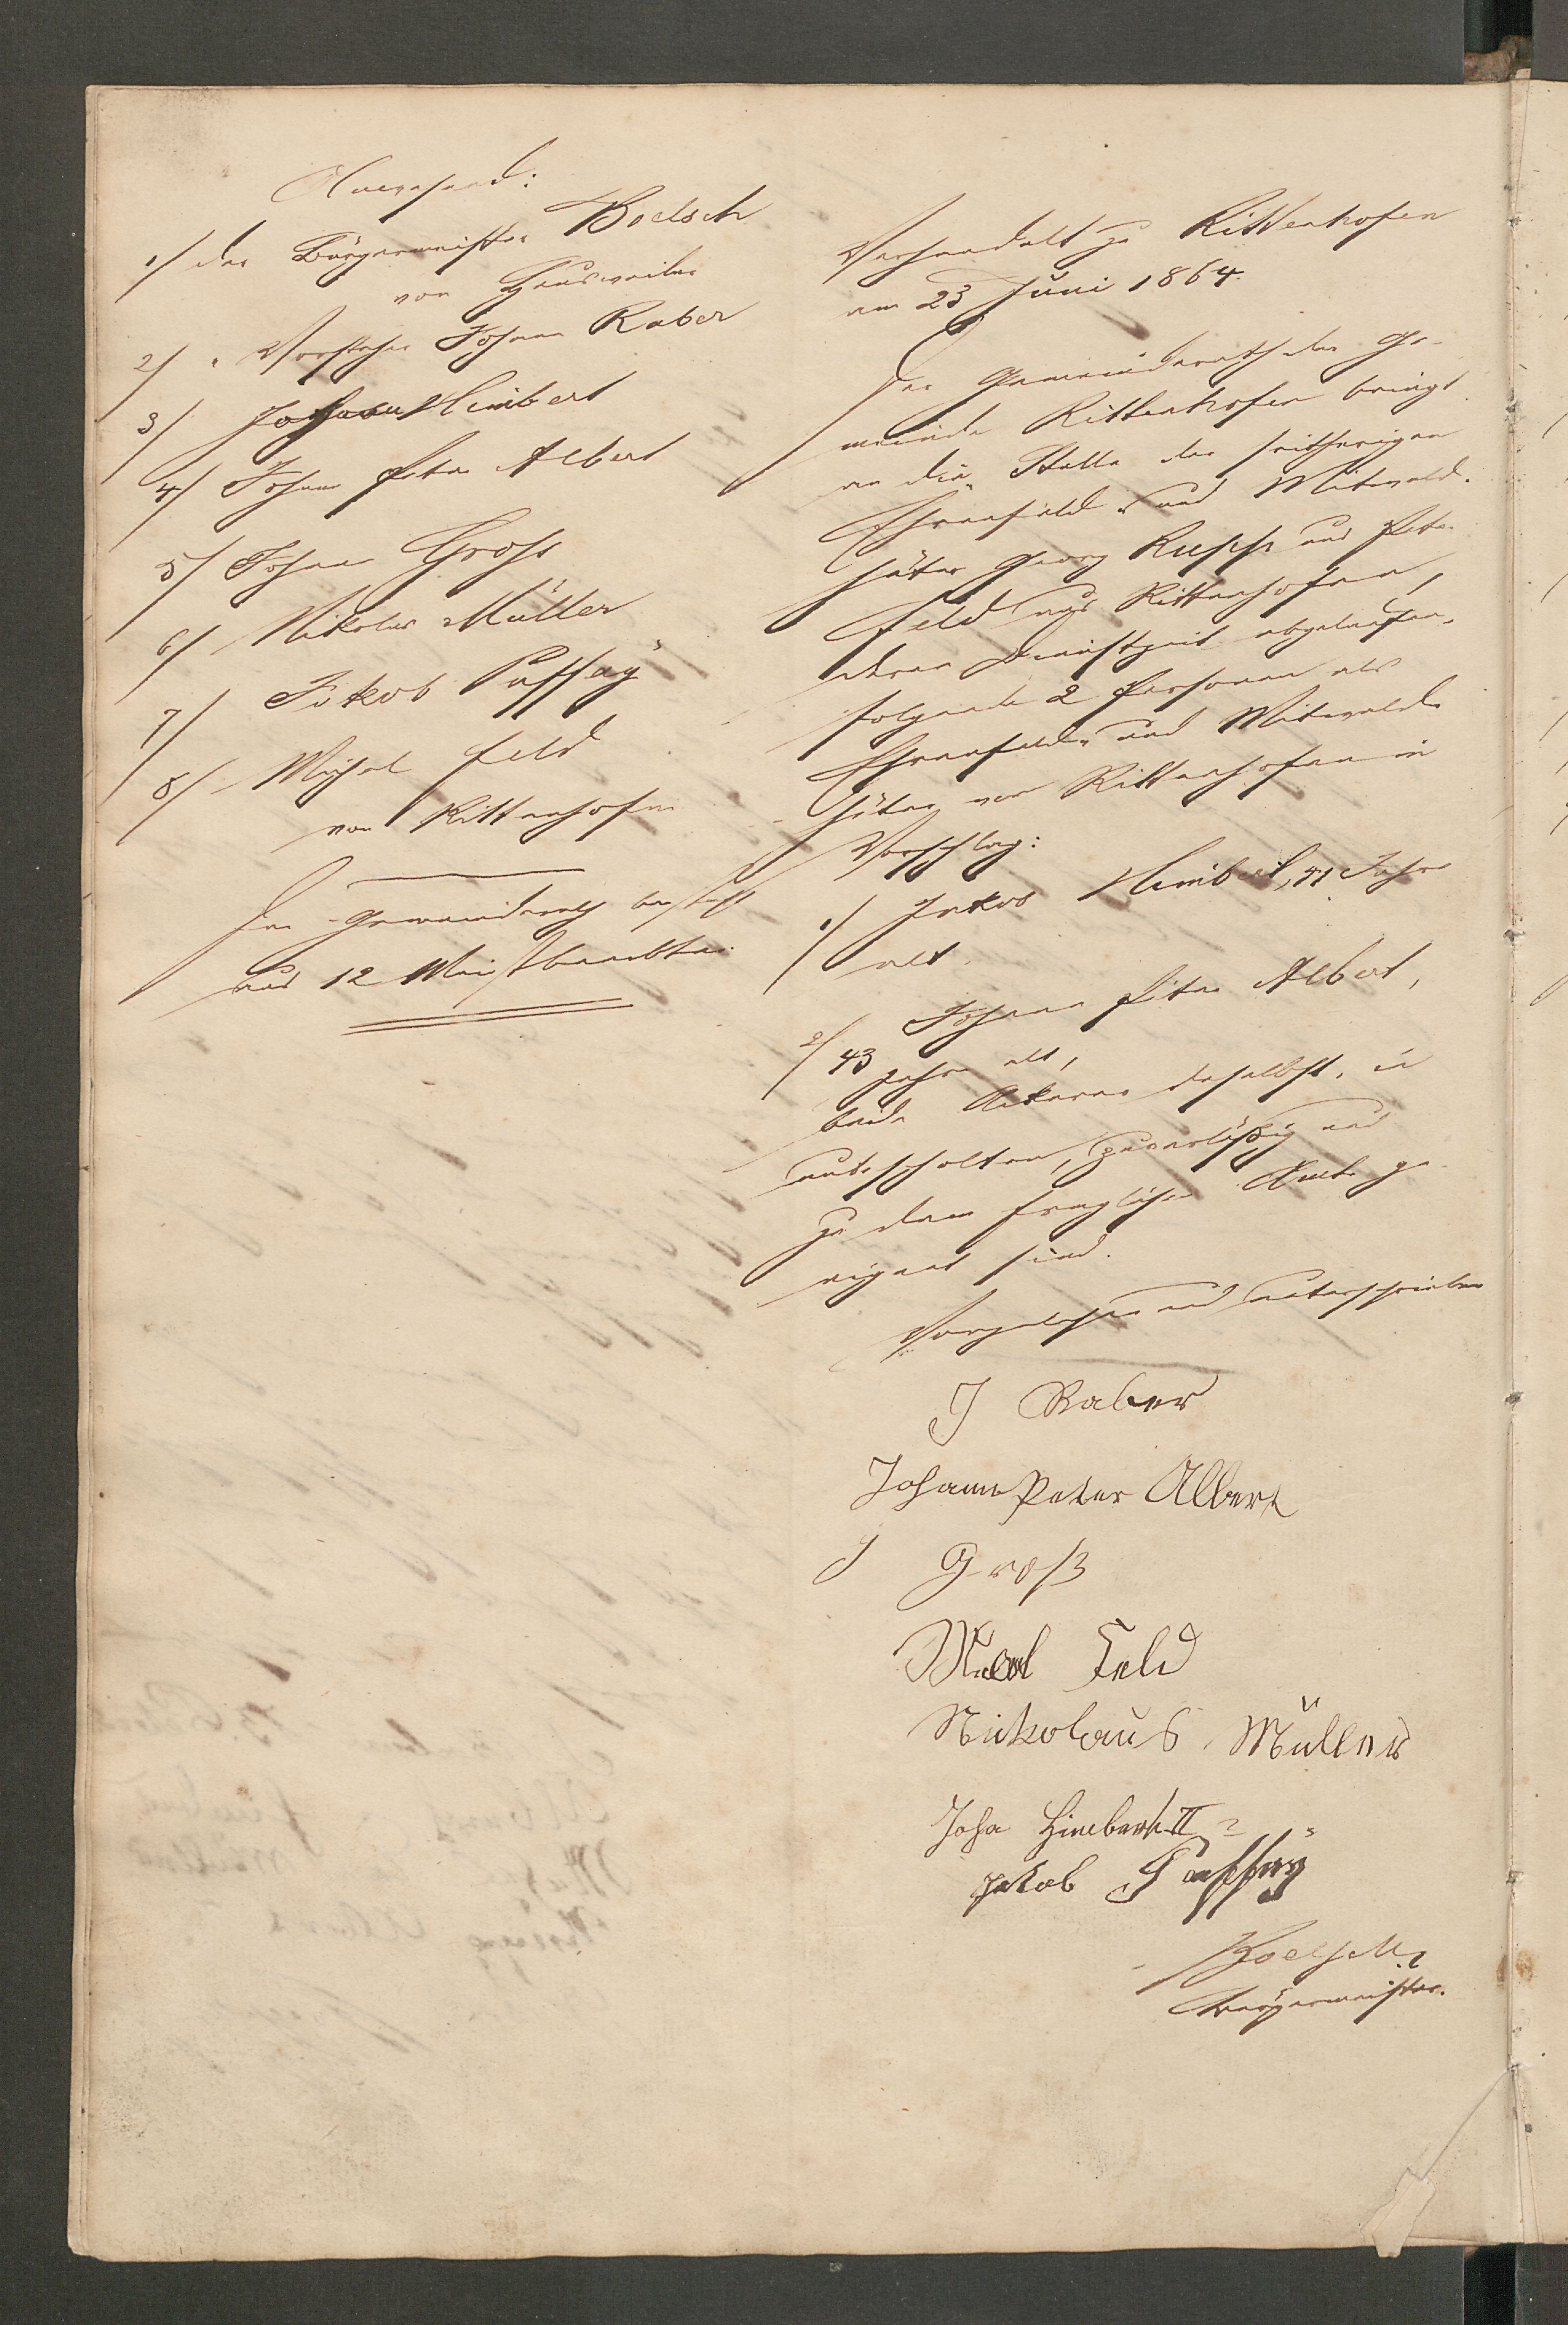 Anwesend:
1/ der Bürgermeister Boelsch
von Heusweiler
2/ " Vorsteher Johann Raber
3/ Johann Himbert
4/ Johann Peter Albert
5/ Johann Groß
6/ Nikolas Müller
7/ Jakob Paffay
8/ Michel Feld
von Rittenhofen
Der Gemeinderath besteht
aus 12 Meistbeerbten.
Verhandelt zu Rittenhofen
am 23 Juni 1864.
Der Gemeinderath der Ge-
meinde Rittenhofen bringt
an die Stelle der seitherigen
Ehrenfeld- und Mitwald-
hüter Georg Rupp und Peter
Feld aus Rittenhofen,
deren Dienstzeit abgelaufen,
folgende 2 Personen als
Ehrenfeld- und Mitwald-
hüter von Rittenhofen in
Vorschlag:
1/ Jakob Himbert, 41 Jahre
alt.
2/ Johann Peter Albert,
43 Jahre alt,
beide Ackerer daselbst,
unbescholten, zuverläßig und
zu dem fraglichen Amte ge-
eignet sind.
Vorgelesen und unterschrieben
J Raber
Johann Peter Albert
J Groß
Feld
Nikolaus Müller
Joha Himbert II
Jakob Paffay
Boelsch
Bürgermeister.